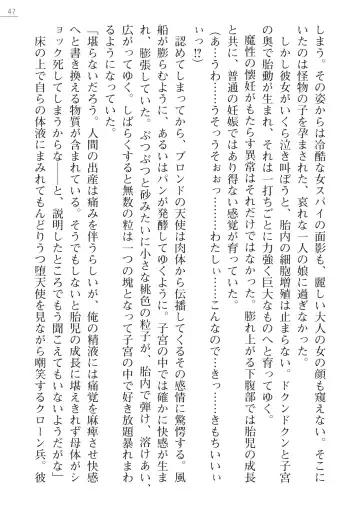 47
しまう。その姿からは冷酷な女スパイの面影も、麗しい大人の女の顔も窺えない。そこに
いたのは怪物の子を孕まされた、哀れな一人の娘に過ぎなかった。
しかし彼女がいくら泣き叫ぼうと、胎内の細胞増殖は止まらない。ドクンドクンと子宮
の奥で胎動が生まれ、それは一打ちごとに力強く巨大なものへと育ってゆく。
魔性の懐妊がもたらす異常はそれだけではなかった。膨れ上がる下腹部では胎児の成長
と共に、普通の妊娠ではあり得ない感覚が育っていた。
(あ…うわ……そぅっうそぉぉぉっ……わたしぃ……こんなので…きっ……きもちいいぃ
いっ!?)
認めてしまってから、ブロンドの天使は肉体から伝播してくるその感情に驚愕する。風
船が膨らむように、あるいはパンが発酵してゆくように。子宮の中では確かに快感が生ま
れ、膨張していた。ぷつぷつと砂みたいに小さな桃色の粒子が、胎内で弾け、溶けあい、
広がってゆく。しばらくすると無数の粒は一つの塊となって子宮の中で好き放題暴れまわ
るようになっていた。
「堪らないだろう。人間の出産は痛みを伴うらしいが、俺の精液には痛覚を麻痺させ快感
へと書き換える物質が含まれている。そうでもしないと胎児の成長に堪えきれず母体がシ
ョック死してしまうからな――と、説明したところでもう聞こえてもいないようだがな」
床の上で自らの体液にまみれてもんどりうつ堕天使を見ながら嘲笑するクローン兵。彼